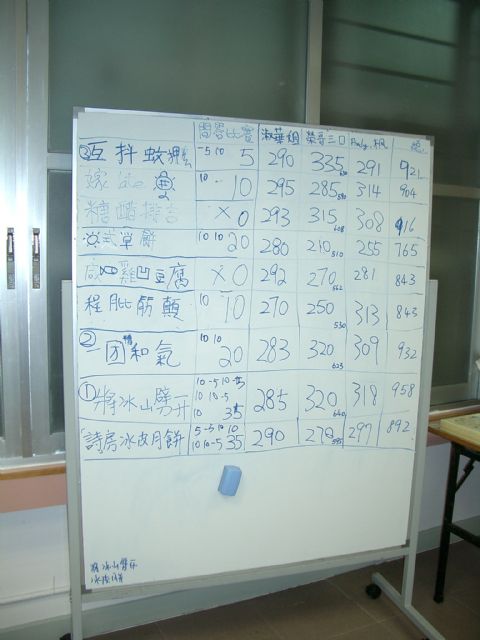 問答比賽 淑華組 榮哥三口
③互抖蚊 -5 10 5 290 335 291 921
嫁 10 10 295 285 314 904
糖醋排骨 X 0 293 315 308 916
草餅 10 10 20 280 210 510 255 765
雞凹豆腐 X 0 292 270 562 281 843
程肥筋顛 10 10 270 250 530 313 843
②一團和氣 10 10 20 283 320 623 309 932
①將冰山劈开 10 -5 10 -5 10 10 -5 10 35 285 320 640 318 958
詩房冰皮月餅 -5 -5 10 10 10 10 -5 35 290 270 595 297 892
將冰山劈开